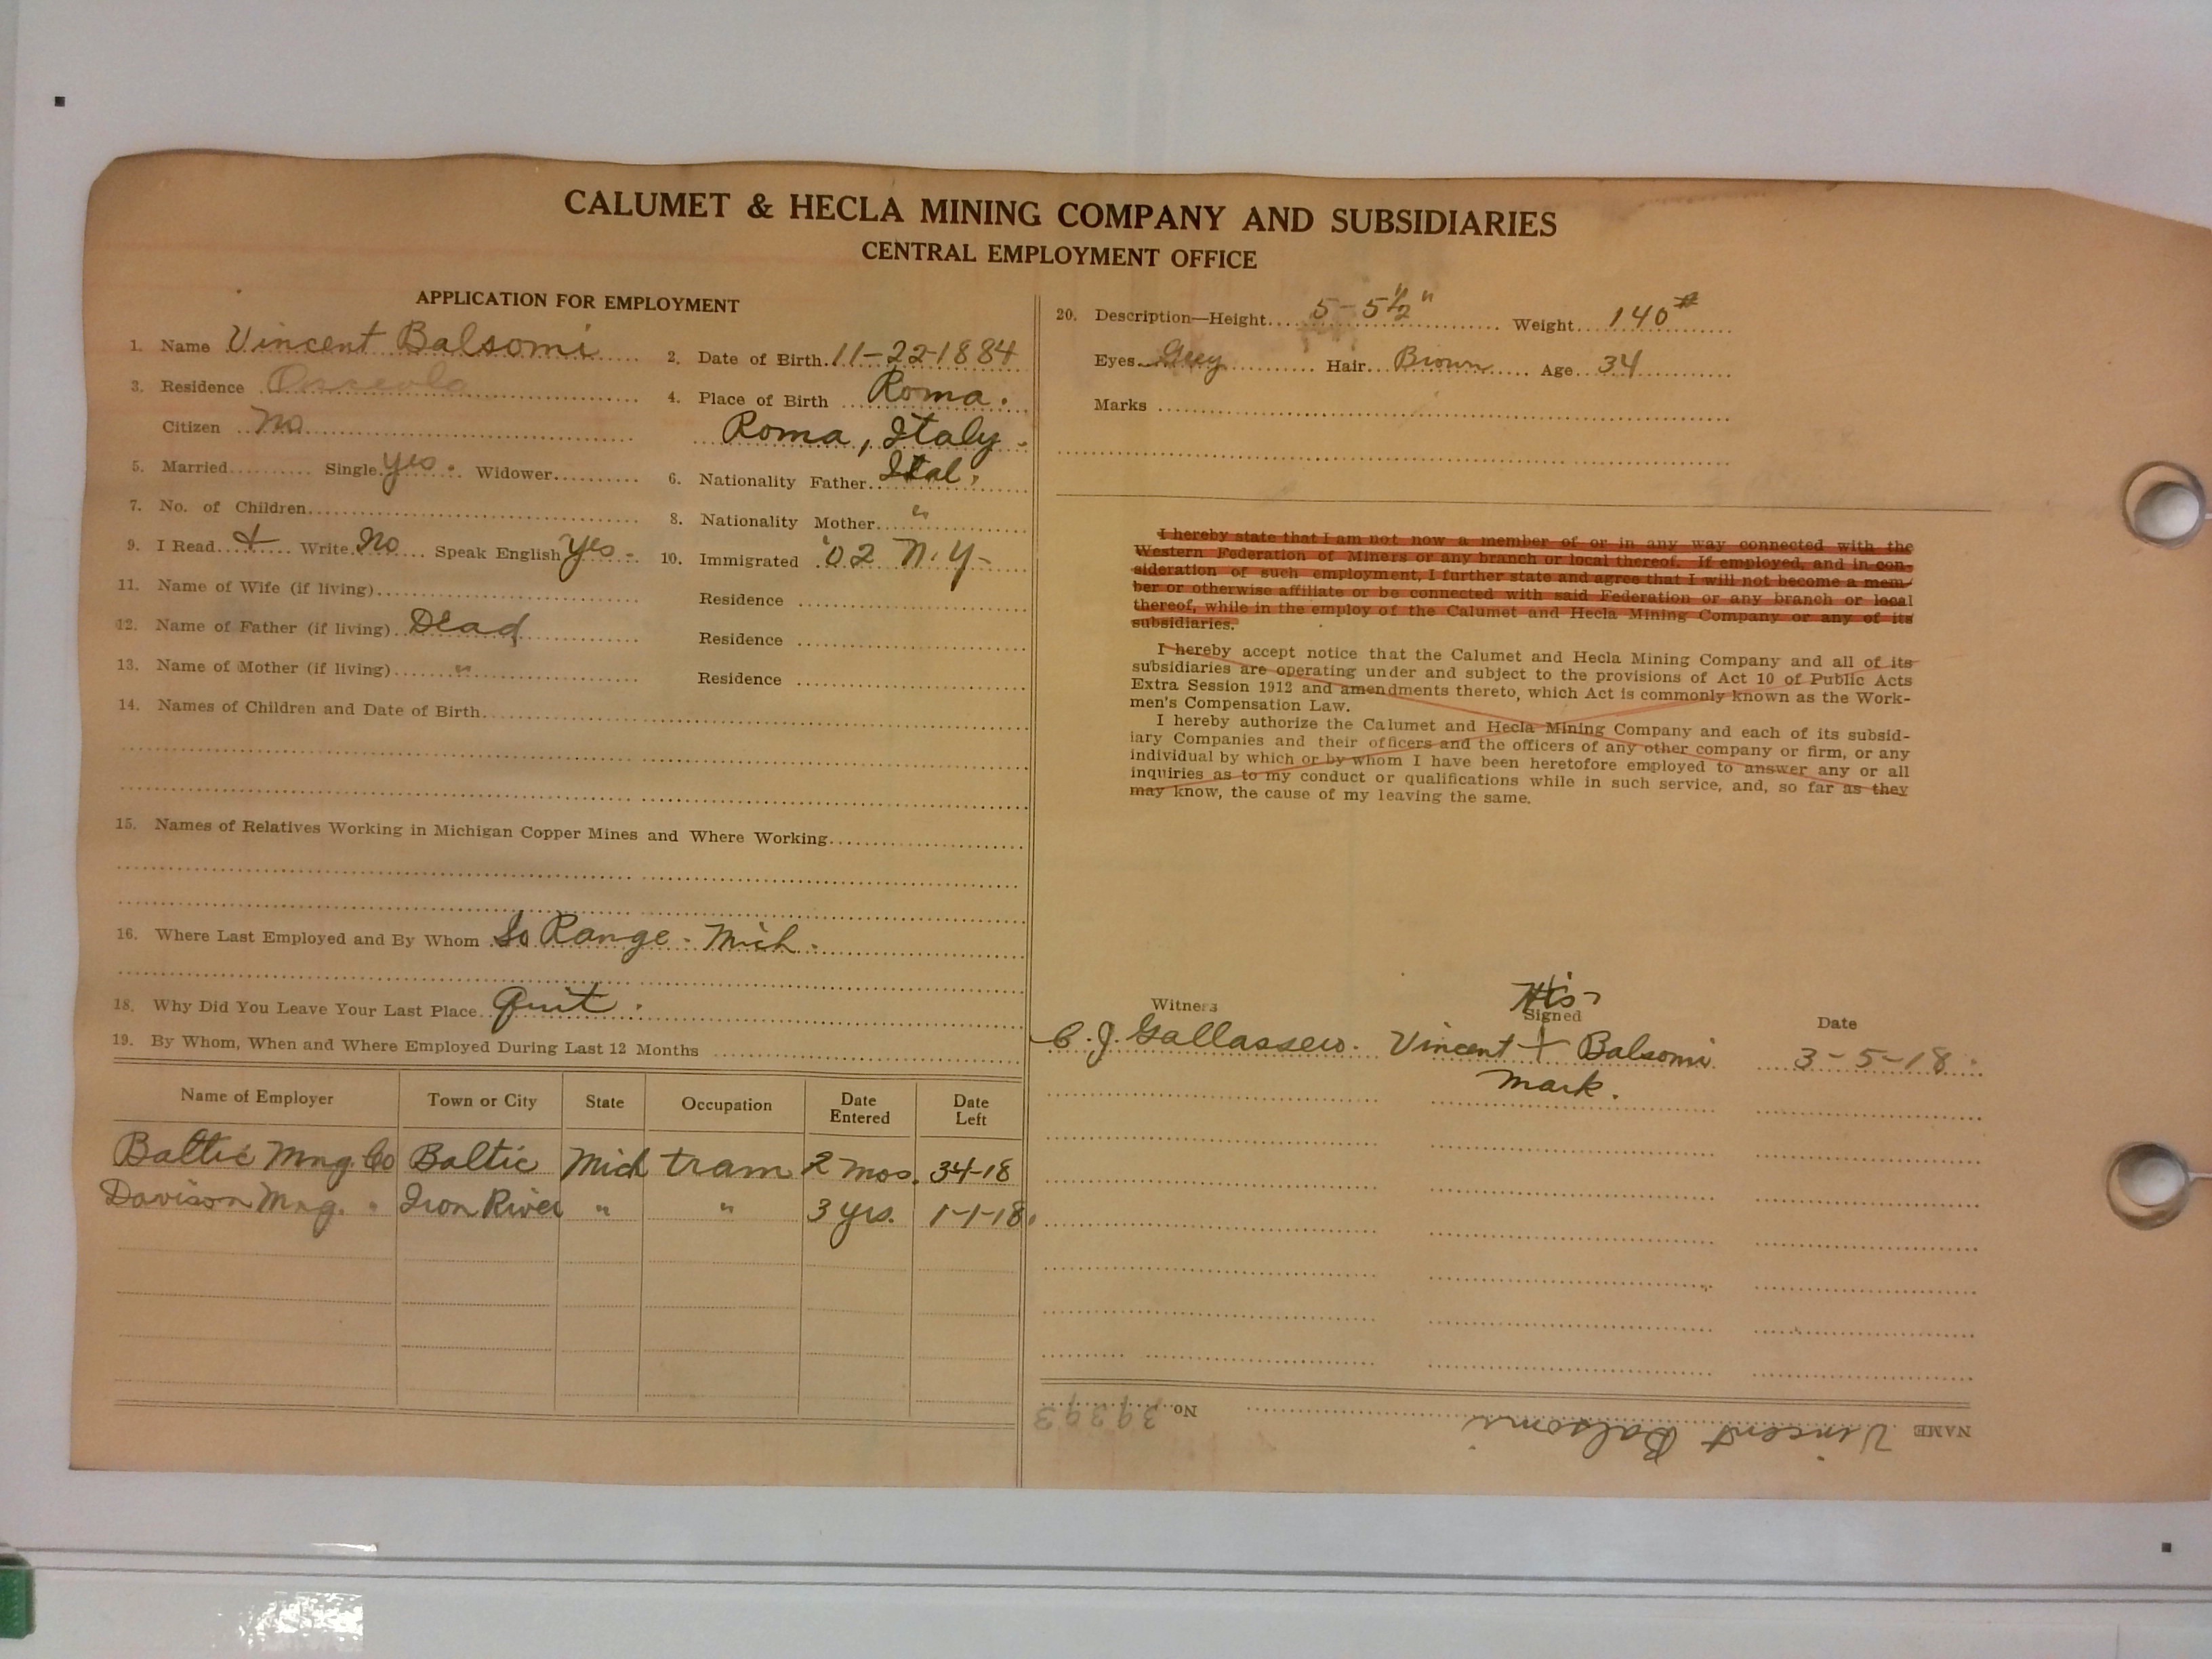 CALUMET & HECLA MINING COMPANY AND SUBSIDIARIES
CENTRAL EMPLOYMENT OFFICE
APPLICATION FOR EMPLOYMENT
1. Name Vincent Balsomi 2. Date of Birth 11-22-1884
3. Residence Osceola 4. Place of Birth Roma.
Citizen No Roma, Italy.
5. Married Single yes. Widower 6. Nationality Father Ital.
7. No. of Children 8. Nationality Mother "
9. I Read + Write No Speak English yes. 10. Immigrated '02 N.Y.
11. Name of Wife (if living) Residence
12. Name of Father (if living) Dead Residence
13. Name of Mother (if living) " Residence
14. Names of Children and Date of Birth
15. Names of Relatives Working in Michigan Copper Mines and Where Working
16. Where Last Employed and By Whom So Range - Mich.
18. Why Did You Leave Your Last Place Quit.
19. By Whom, When and Where Employed During Last 12 Months
Name of Employer Town or City State Occupation Date Entered Date Left
Baltic Mng. Co Baltic Mich tram 2 mos. 34-18
Davison Mng. " Iron River " " 3 yrs. 1-1-18
20. Description—Height 5-5½" Weight 140#
Eyes Grey Hair Brown Age 34
Marks
I hereby state that I am not now a member of or in any way connected with the
Western Federation of Miners or any branch or local thereof. If employed, and in con-
sideration of such employment, I further state and agree that I will not become a mem-
ber or otherwise affiliate or be connected with said Federation or any branch or local
thereof, while in the employ of the Calumet and Hecla Mining Company or any of its
subsidiaries.
I hereby accept notice that the Calumet and Hecla Mining Company and all of its
subsidiaries are operating under and subject to the provisions of Act 10 of Public Acts
Extra Session 1912 and amendments thereto, which Act is commonly known as the Work-
men's Compensation Law.
I hereby authorize the Calumet and Hecla Mining Company and each of its subsid-
iary Companies and their officers and the officers of any other company or firm, or any
individual by which or by whom I have been heretofore employed to answer any or all
inquiries as to my conduct or qualifications while in such service, and, so far as they
may know, the cause of my leaving the same.
His
Witness Signed Date
C. J. Gallassero. Vincent + Balsomi 3-5-18
Mark.
NAME Vincent Balsomi No. 39393